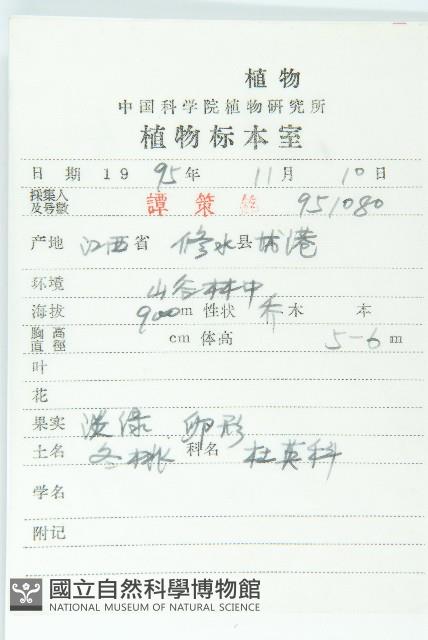 植物
中国科学院植物研究所
植物标本室
日 期 19 95年 11月 10日
採集人及号數 譚策銘 951080
产地 江西省 修水县 港
环境 山谷林中
海拔 900m 性状 乔木 本
胸高直徑 cm 体高 5-6m
叶
花
果实 淡绿 卵形
土名 冬桃 科名 杜英科
学名
附记
國立自然科學博物館
NATIONAL MUSEUM OF NATURAL SCIENCE